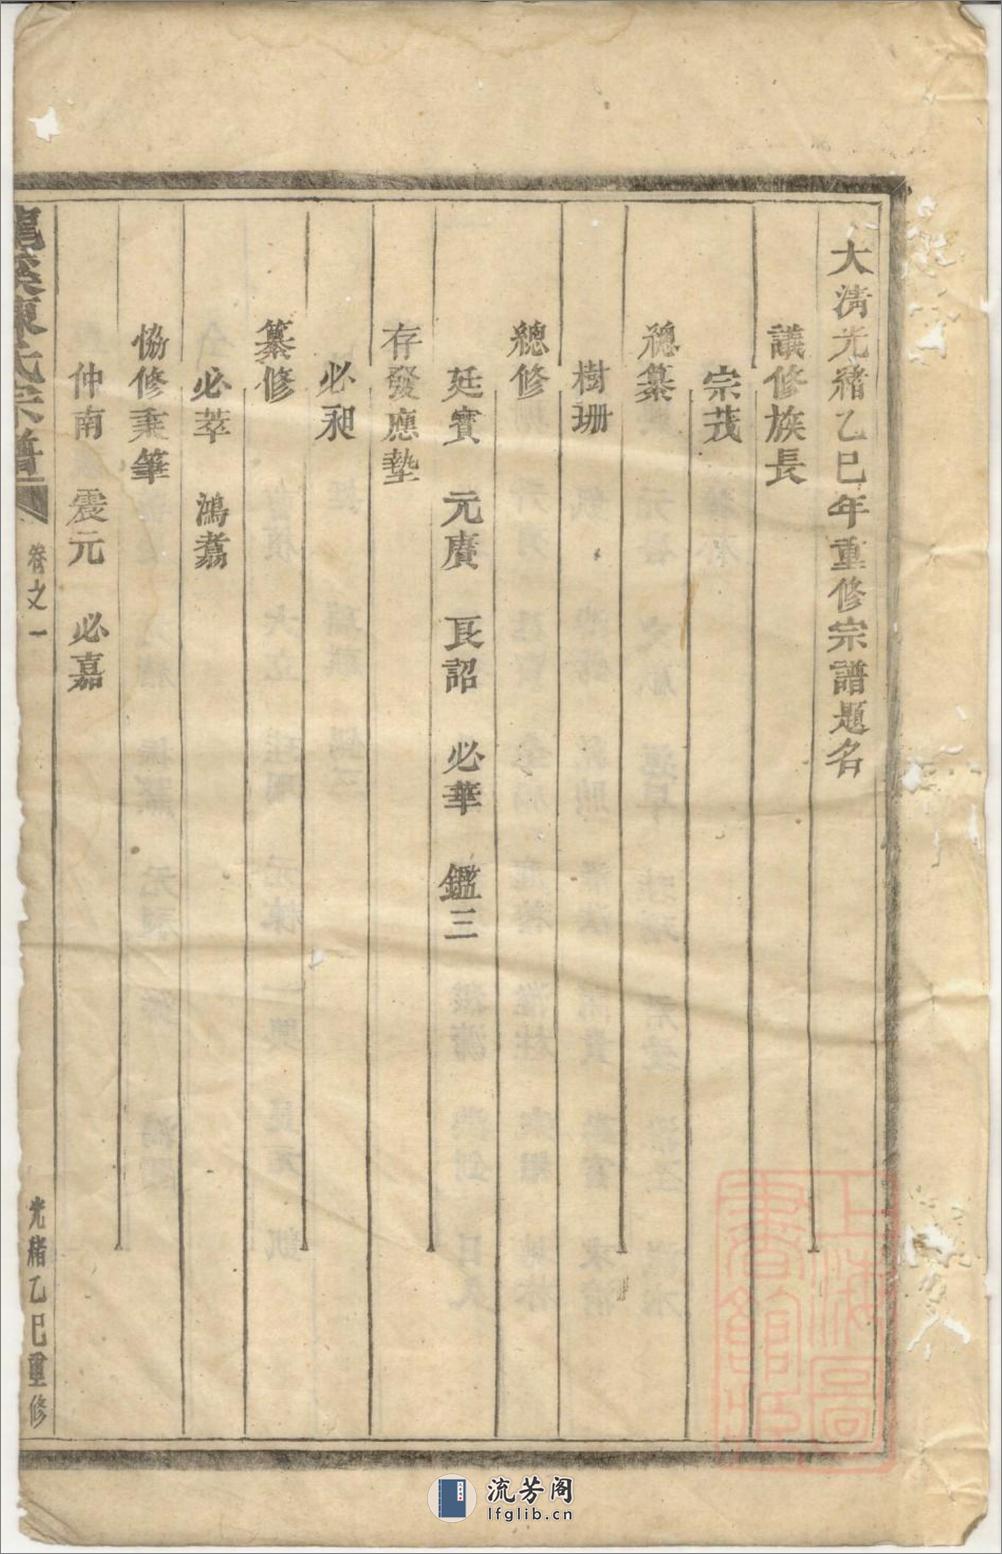 大清光緒乙巳年重修宗譜題名
議修族長
宗茂
總纂
樹珊
總修
廷賓 元賡 良詔 必華 鑑三
存發應墊
必昶
纂修
必萃 鴻翥
恊修秉筆
仲南 震元 必嘉
龍溪陳氏宗譜 卷之一 光緒乙巳重修
上海圖書館藏
流芳阁
lfglib.cn